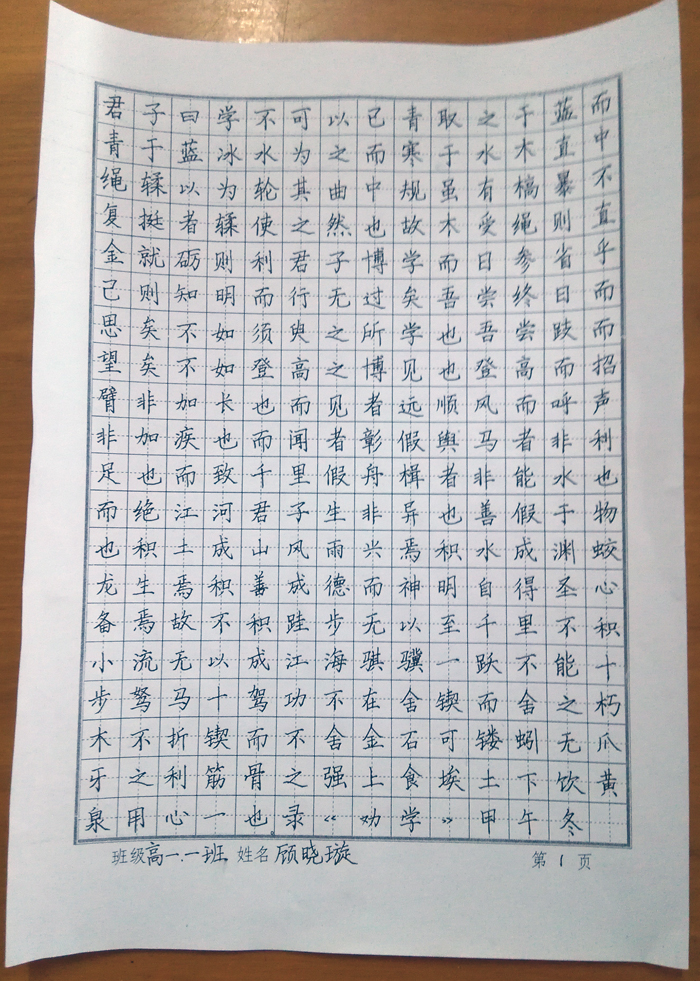 君子曰学不可以已青取之于蓝而
青于蓝冰水为之而寒于水木直中
绳輮以为轮其曲中规虽有槁暴不
复挺者輮使之然也故木受绳则直
金就砺则利君子博学而日参省乎
己则知明而行无过矣吾尝终日而
思矣不如须臾之所学也吾尝跂而
望矣不如登高之博见也登高而招
臂非加长也而见者远顺风而呼声
非加疾也而闻者彰假舆马者非利
足也而致千里假舟楫者非能水也
而绝江河君子生非异也善假于物
也积土成山风雨兴焉积水成渊蛟
龙生焉积善成德而神明自得圣心
备焉故不积跬步无以至千里不积
小流无以成江海骐骥一跃不能十
步驽马十驾功不在舍锲而舍之朽
木不折锲而不舍金石可镂蚓无爪
牙之利筋骨之强上食埃土下饮黄
泉用心一也录《劝学》甲午冬
班级高一.一班 姓名顾晓璇 第1页